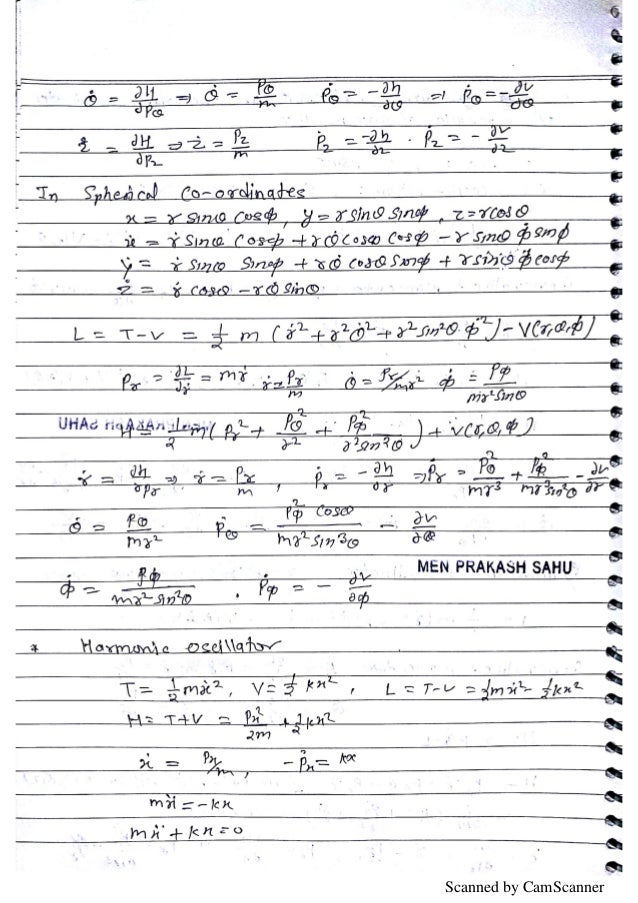 θ̇ = ∂H/∂Pθ ⇒ θ̇ = Pθ/m Ṗθ = -∂h/∂θ ⇒ Ṗθ = -∂v/∂θ
ż = ∂H/∂Pz ⇒ ż = Pz/m Ṗz = -∂h/∂z . Ṗz = -∂v/∂z
In Spherical Co-ordinates
x = r sinθ cosφ, y = r sinθ sinφ, z = r cosθ
ẋ = ṙ sinθ cosφ + rθ̇ cosθ cosφ - r sinθ φ̇ sinφ
ẏ = ṙ sinθ sinφ + rθ̇ cosθ sinφ + r sinθ φ̇ cosφ
ż = ṙ cosθ - rθ̇ sinθ
L = T-V = 1/2 m (ṙ² + r²θ̇² + r² sin²θ φ̇²) - V(r,θ,φ)
Pr = ∂L/∂ṙ = mṙ ṙ = Pr/m θ̇ = Pθ/mr² φ̇ = Pφ/mr² sin²θ
H = 1/2 m (Pr² + Pθ²/r² + Pφ²/r² sin²θ) + V(r,θ,φ)
ṙ = ∂h/∂Pr ⇒ ṙ = Pr/m , Ṗr = -∂h/∂r ⇒ Ṗr = Pθ²/mr³ + Pφ²/mr³ sin²θ - ∂v/∂r
θ̇ = Pθ/mr² Ṗθ = Pφ² cosθ/mr² sin³θ - ∂v/∂θ
MEN PRAKASH SAHU
φ̇ = Pφ/mr² sin²θ . Ṗφ = - ∂v/∂φ
* Harmonic oscillator
T = 1/2 mẋ², V = 1/2 kx² , L = T-V = 1/2 mẋ² - 1/2 kx²
H = T+V = Px²/2m + 1/2 kx²
ẋ = Px/m , -Ṗx = kx
mẍ = -kx
mẍ + kx = 0
Scanned by CamScanner